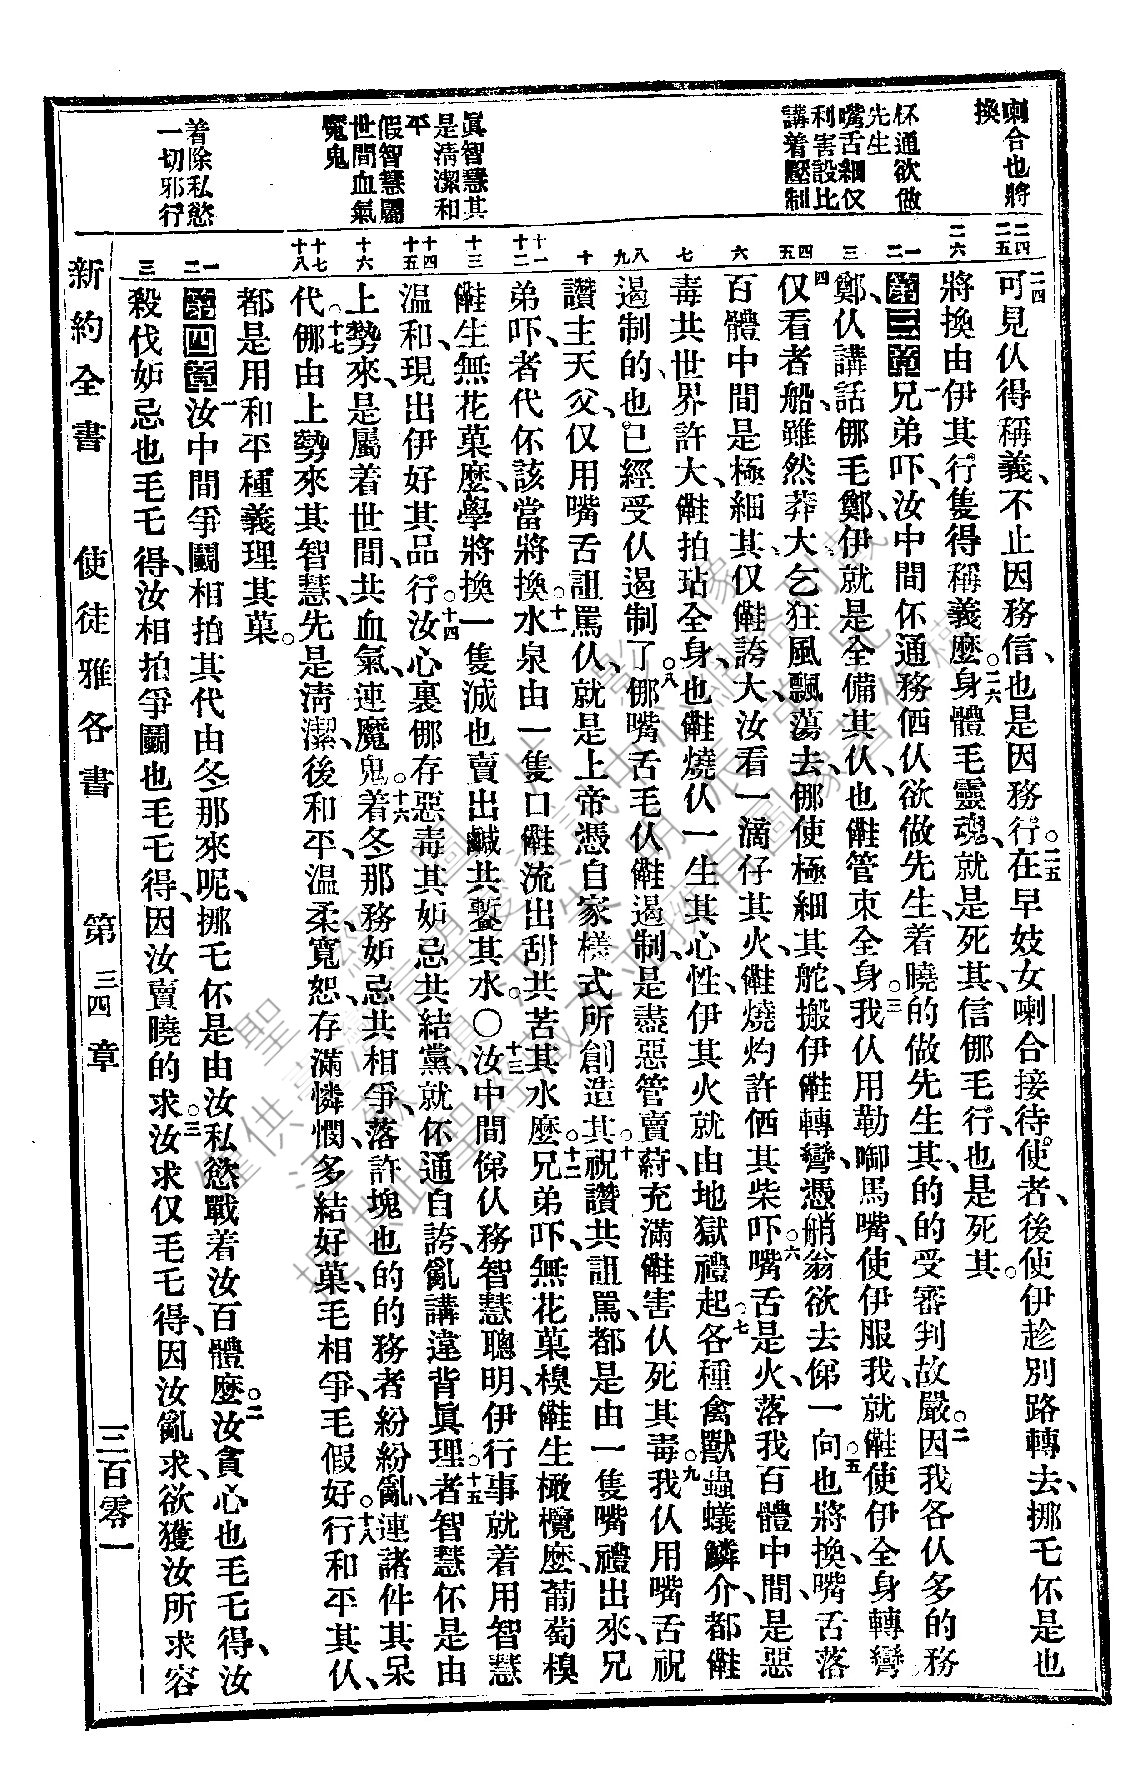 喇合也將
換
怀通欲做
先生
嘴舌細仅
利害設比
講着壓制
眞智慧其
是清潔和
平
假智慧鬭
世間血氣
魔鬼
着除私慾
一切邪行
二四
二五
二六
一
二
三
四
五
六
七
八
九
十
十一
十二
十三
十四
十五
十六
十七
十八
一
二
三
二四可見仈得稱義、不止因務信、也是因務行。二五在早妓女喇合接待使者、後使伊趁別路轉去、挪乇怀是也
將換由伊其行隻得稱義麼。二六身體毛靈魂、就是死其、信㑚毛行、也是死其。
第三章一兄弟吓、汝中間怀通務価仈欲做先生、着曉的做先生其、的的受審判故嚴。二因我各仈多的務
鄭、仈講話㑚毛鄭、伊就是全備其仈、也㒕管束全身。三我仈用勒啣馬嘴、使伊服我、就㒕使伊全身轉彎。
四仅看者船、雖然莽大、乞狂風飄蕩去、㑚使極細其舵、搬伊㒕轉彎、憑艄翁欲去俤一向。五也將換、嘴舌落
百體中間是極細其、仅㒕誇大、汝看一滴仔其火、㒕燒灼許価其柴。六吓嘴舌是火、落我百體中間、是惡
毒共世界許大、㒕拍玷全身、也㒕燒仈一生其心性、伊其火就由地獄禮起。七各種禽獸蟲蟻鱗介、都㒕
遏制的、也已經受仈遏制了。八㑚嘴舌毛仈㒕遏制、是盡惡管賣䓔、充滿㒕害仈死其毒。九我仈用嘴舌祝
讚主天父、仅用嘴舌詛罵仈、就是上帝憑自家樣式所創造其。十祝讚共詛罵、都是由一隻嘴禮出來、兄
弟吓、者代怀該當將換。十一水泉由一隻口、㒕流出甜共苦其水麼。十二兄弟吓、無花菓樉、㒕生橄欖麼、葡萄樉
㒕生無花菓麼、學將換一隻滅也賣出鹹共䥕其水。〇十三汝中間俤仈務智慧聰明、伊行事就着用智慧
溫和、現出伊好其品行。十四汝心裏㑚存惡毒其妒忌共結黨、就怀通自誇、亂講違背眞理。十五者智慧怀是由
上勢來、是屬着世間、共血氣、連魔鬼。十六着冬那務妒忌共相爭、落許塊也的的務者紛紛亂、連諸件其呆
代。十七㑚由上勢來其智慧、先是清潔、後和平、溫柔、寬恕、存滿憐憫、多結好菓、毛相爭、毛假好。十八行和平其仈、
都是用和平種義理其菓。
第四章一汝中間爭鬭相拍其代由冬那來呢、挪乇怀是由汝私慾戰着汝百體麼。二汝貪心也毛乇得、汝
殺伐妒忌也毛乇得、汝相拍爭鬭也毛乇得、因汝賣曉的求。三汝求仅毛乇得、因汝亂求、欲獲汝所求容
新約全書　使徒雅各書　第三四章　三百零一